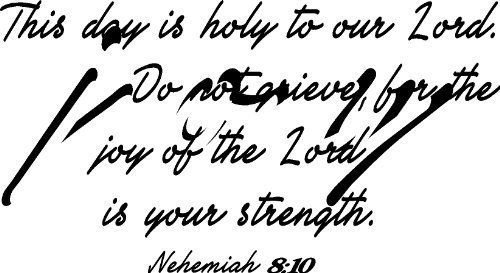 This day is holy to our Lord.
Do not grieve, for the
joy of the Lord
is your strength.
Nehemiah 8:10